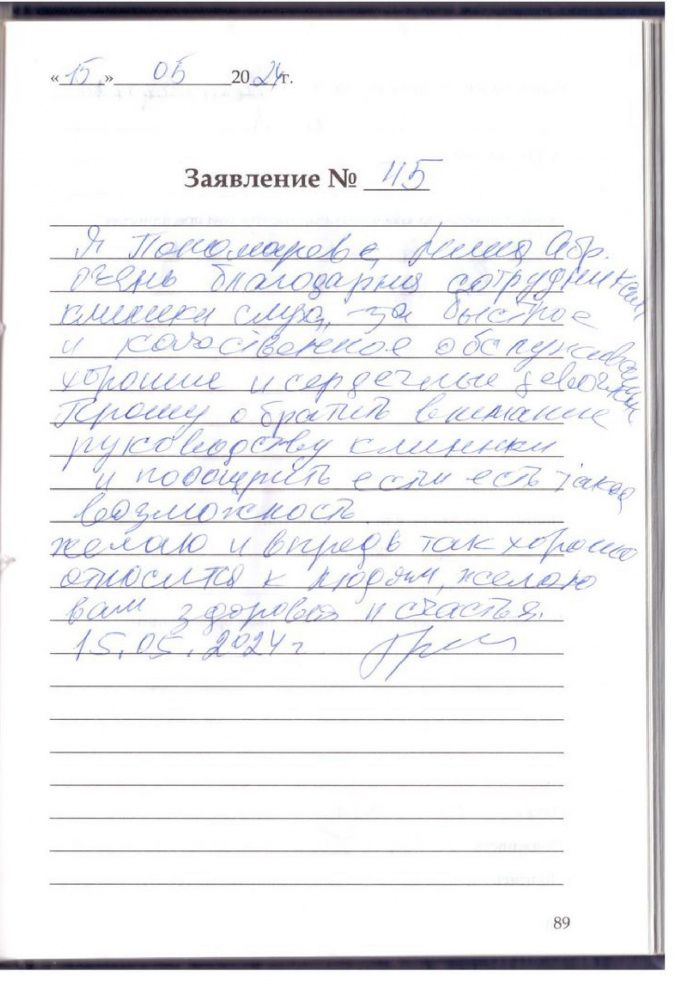 « 15 » 05 2024 г.
Заявление № 45
Я Пономарева Абр.
очень благодарна сотрудникам
клиники слуха, за быстрое
и качественное обслуживание
хорошие и сердечные девочки
Прошу обратить внимание
руководству клиники
и поощрить если есть такая
возможность
желаю и впредь так хорошо
относится к людям, желаю
вам здоровья и счастья.
15.05.2024 г
89